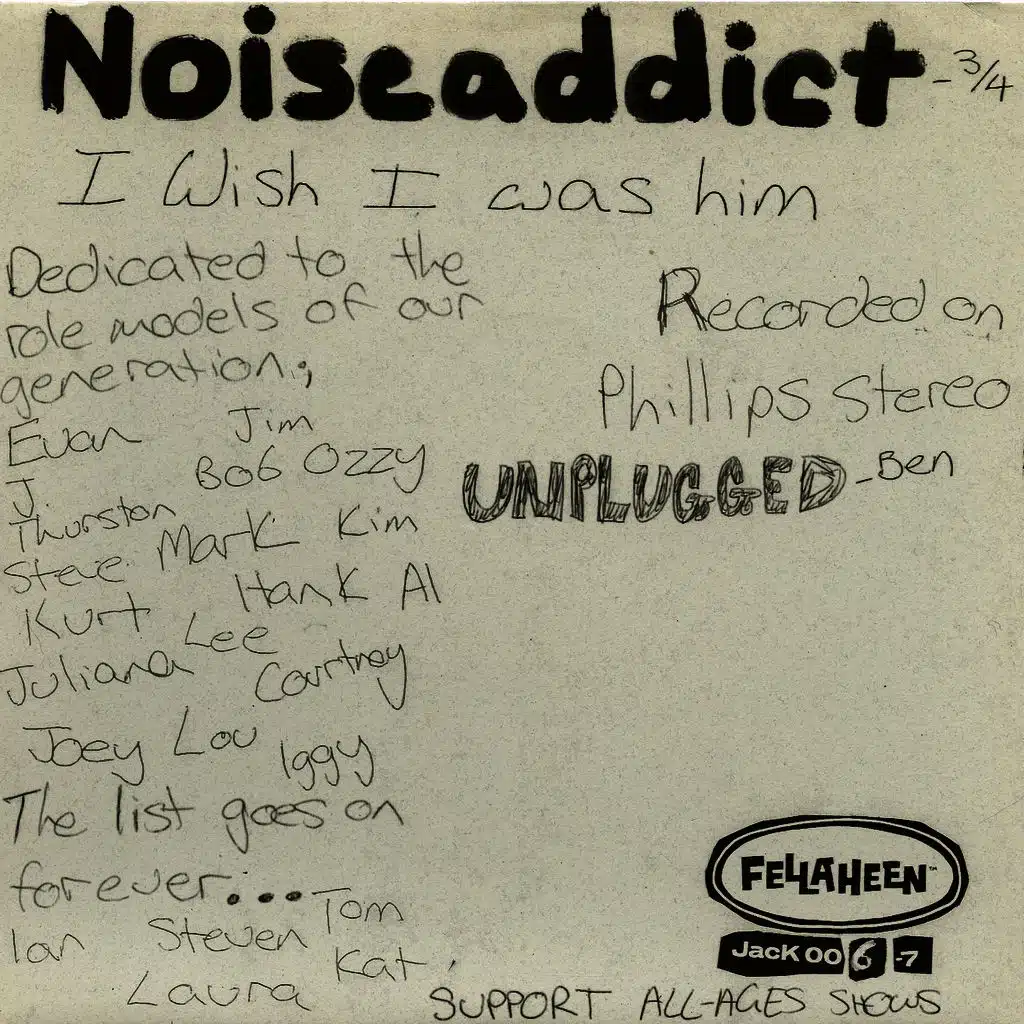 Noiseaddict - 3/4
I Wish I was him
Dedicated to the
role models of our
generation;
Evan Jim
J. Bob Ozzy
Thurston
Steve Mark Kim
Kurt Hank Al
Juliana Lee
Courtney
Joey Lou Iggy
The list goes on
forever...
Tom
Ian Steven
Kat
Laura
Recorded on
Phillips Stereo
UNPLUGGED - Ben
FELLAHEEN™
Jack 00 6 -7
SUPPORT ALL-AGES SHOWS